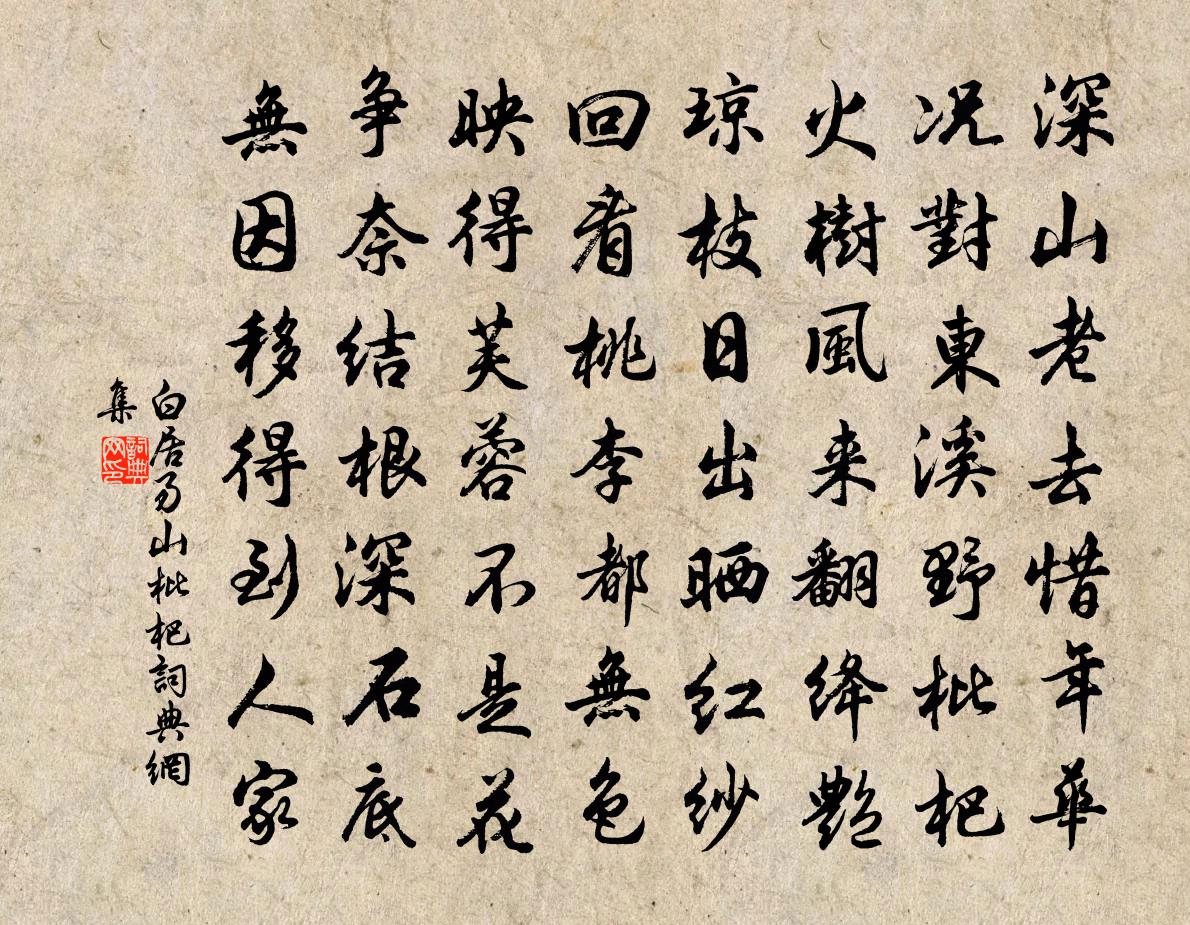 深山老去惜年華
况對東溪野枇杷
火樹風来翻绛艷
琼枝日出晒红纱
回看桃李都無色
映得芙蓉不是花
争奈结根深石底
無因移得到人家
白居易山枇杷詞典網
集
詞典网印